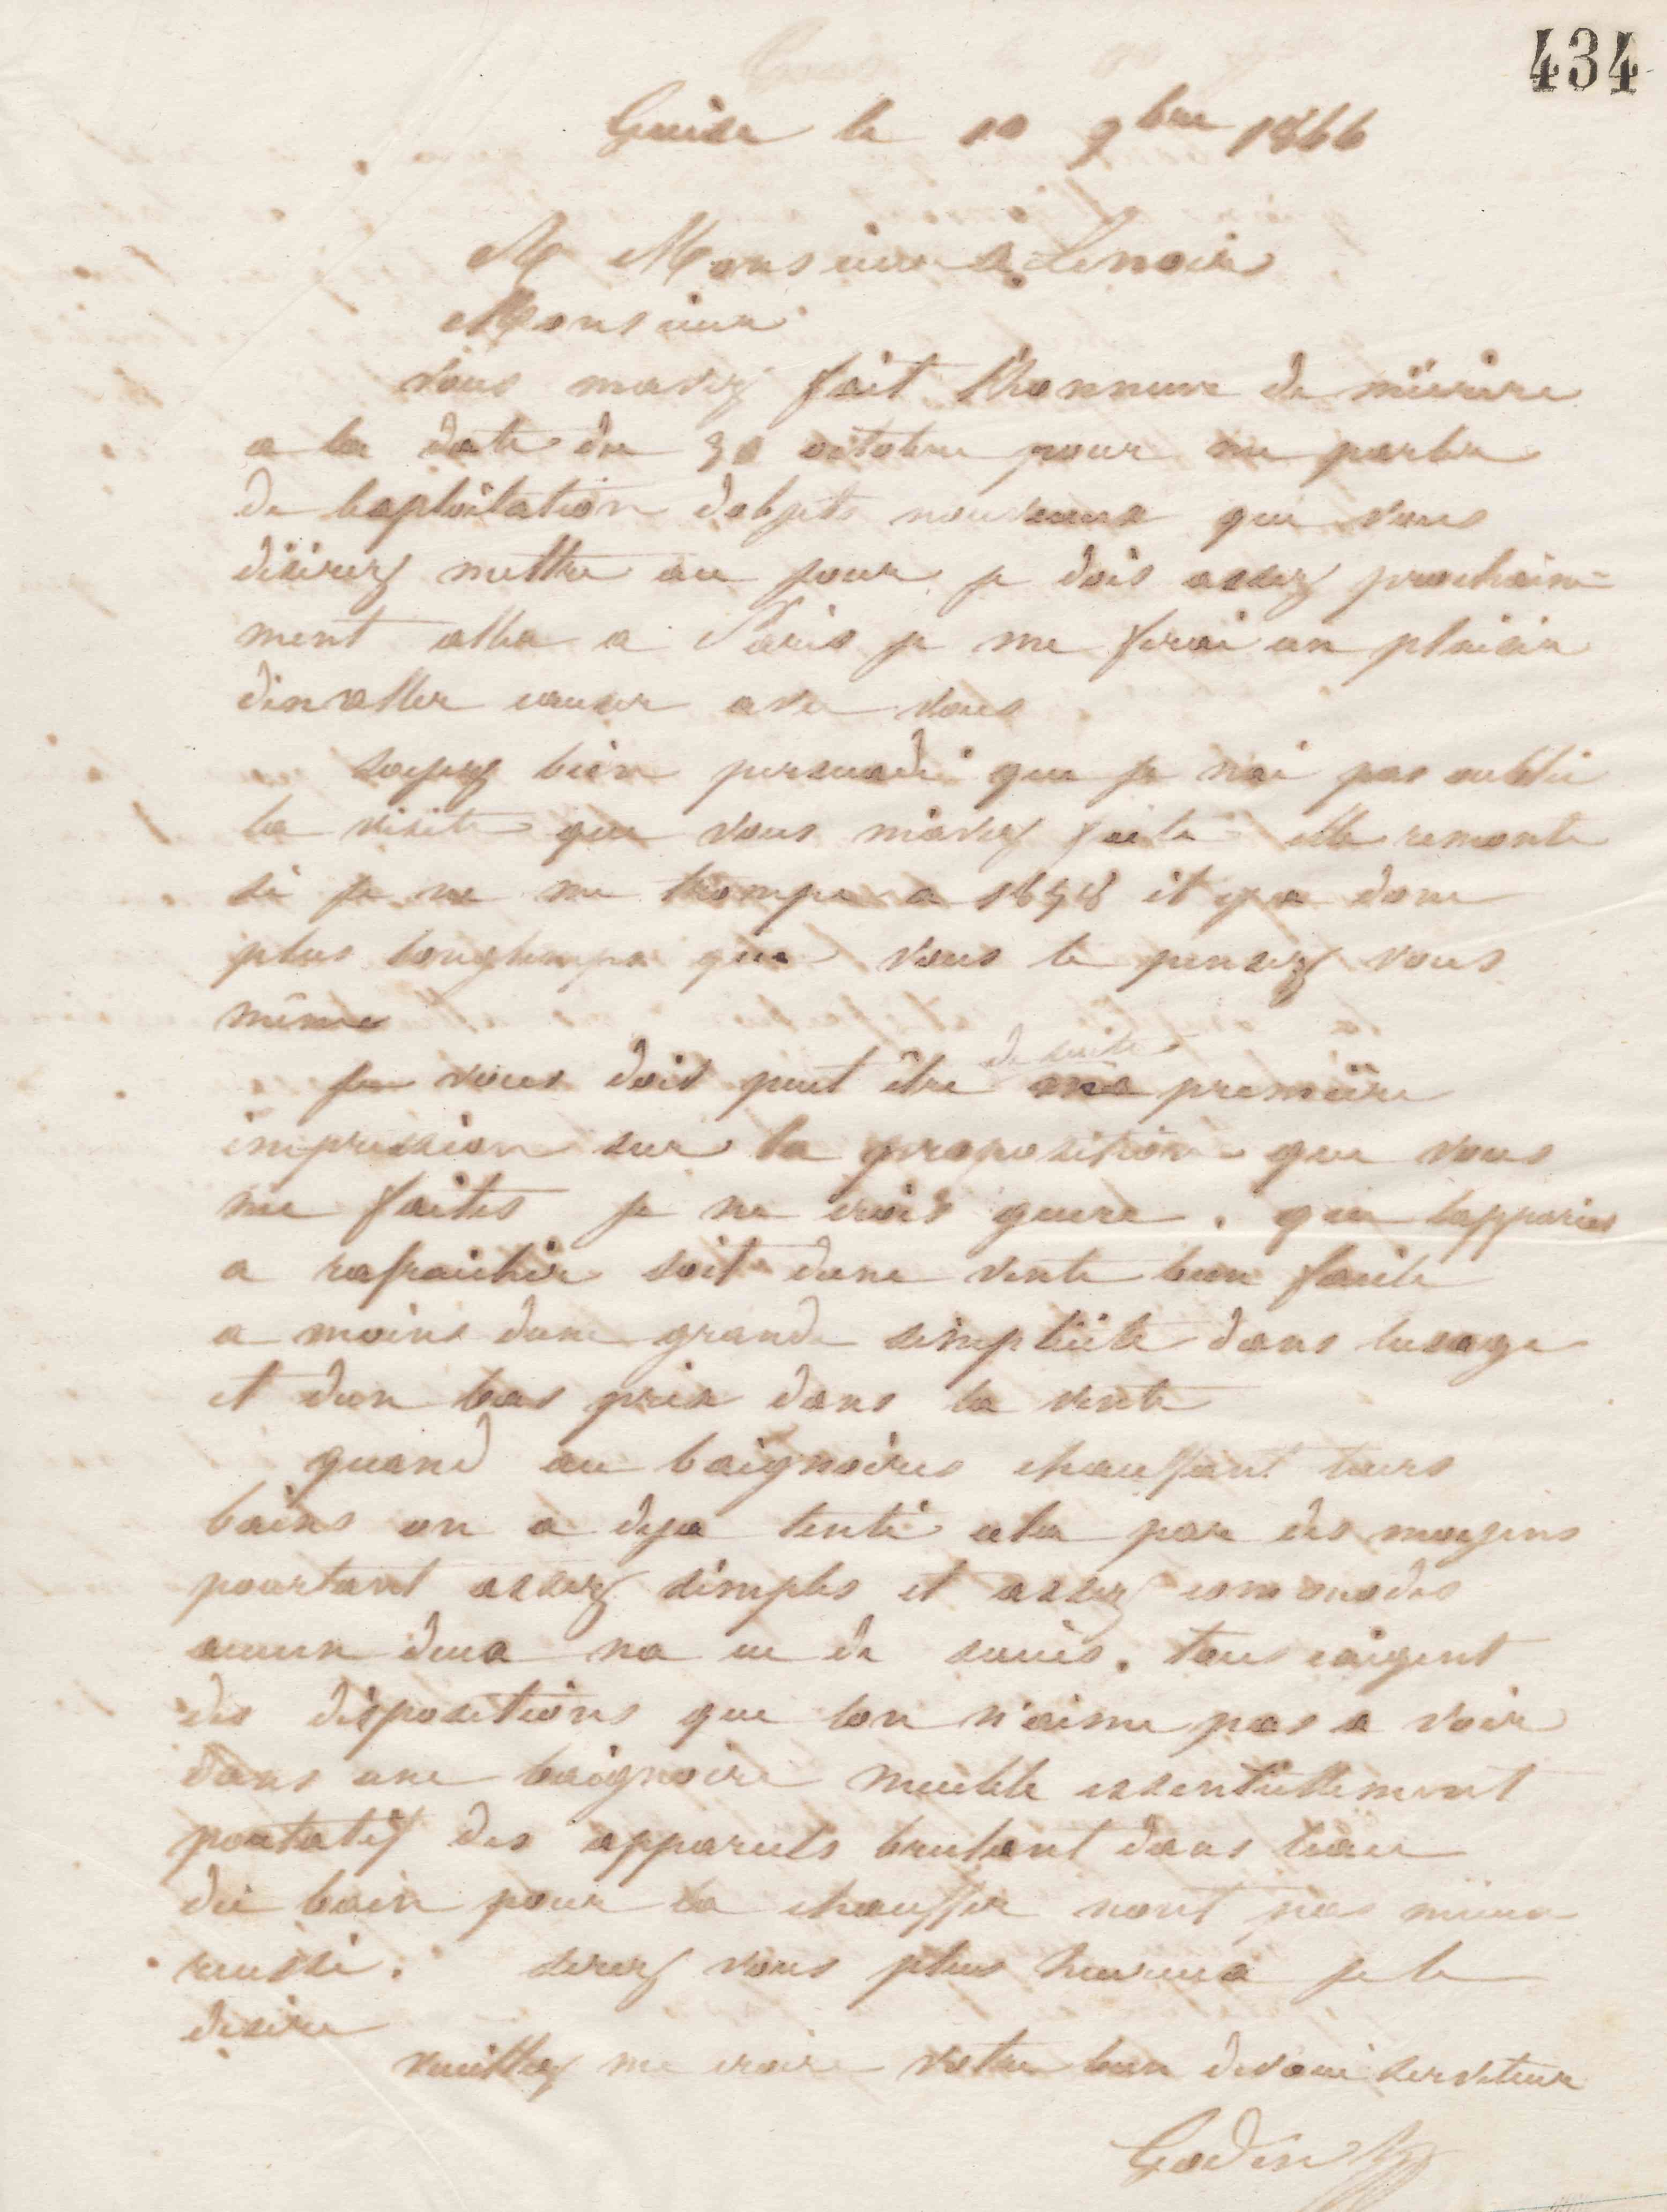 434
Guise le 10 9bre 1866
A Monsieur A. Lenoir
Monsieur
Vous mavez fait l'honneur de m'ecrire
a la date du 30 octobre pour me parler
de lexploitation dobjets nouveaux que vous
désirez mettre au jour je dois assez prochaine=
ment aller a Paris je me ferai un plaisir
den aller causer avec vous
soyez bien persuadé que je nai pas oublié
la visite que vous m'avez faite elle remonte
si je ne me trompe a 1858 il y a donc
plus longtemps que vous le pensez vous
même
Je vous dois peut être de suite ma première
impression sur la proposition que vous
me faites je ne crois guere. que lappareil
a rafraichir soit dune vente bien facile
a moins dune grande simplicité dans lusage
et dun bas prix dans la vente
quand au baignoires chauffant leurs
bains on a deja tenté cela par des moyens
pourtant assez simples et assez commodes
aucun deux na eu de succès. tous exigent
des dispositions que lon n'aime pas a voir
dans une baignoire meuble essentiellement
portatif des appareils brulant dans leau
du bain pour la chauffer nont pas mieux
reussi. serez vous plus heureux je le
desire
veuillez me croire votre bien devoué serviteur
Godin